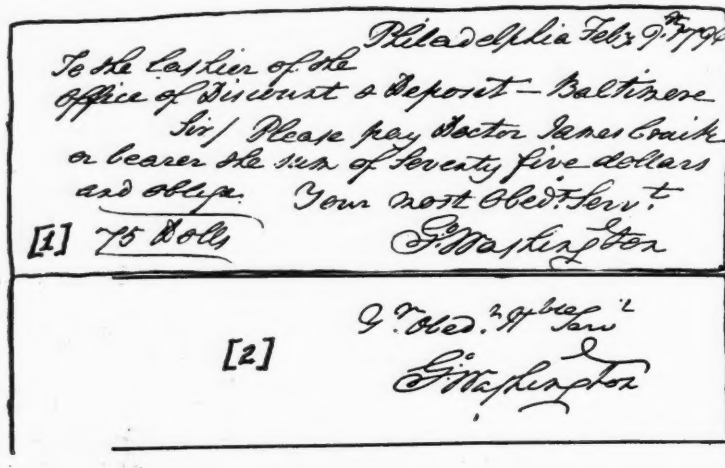 Philadelphia Feby 9th 1796
To the Cashier of the
office of Discount & Deposit — Baltimore
Sir/ Please pay Doctor James Craik
or bearer the sum of Seventy five dollars
and oblige Your most Obedt Servt
[1] 75 Dolls G:Washington
Yr Obedt Hble Servt
[2] G:Washington